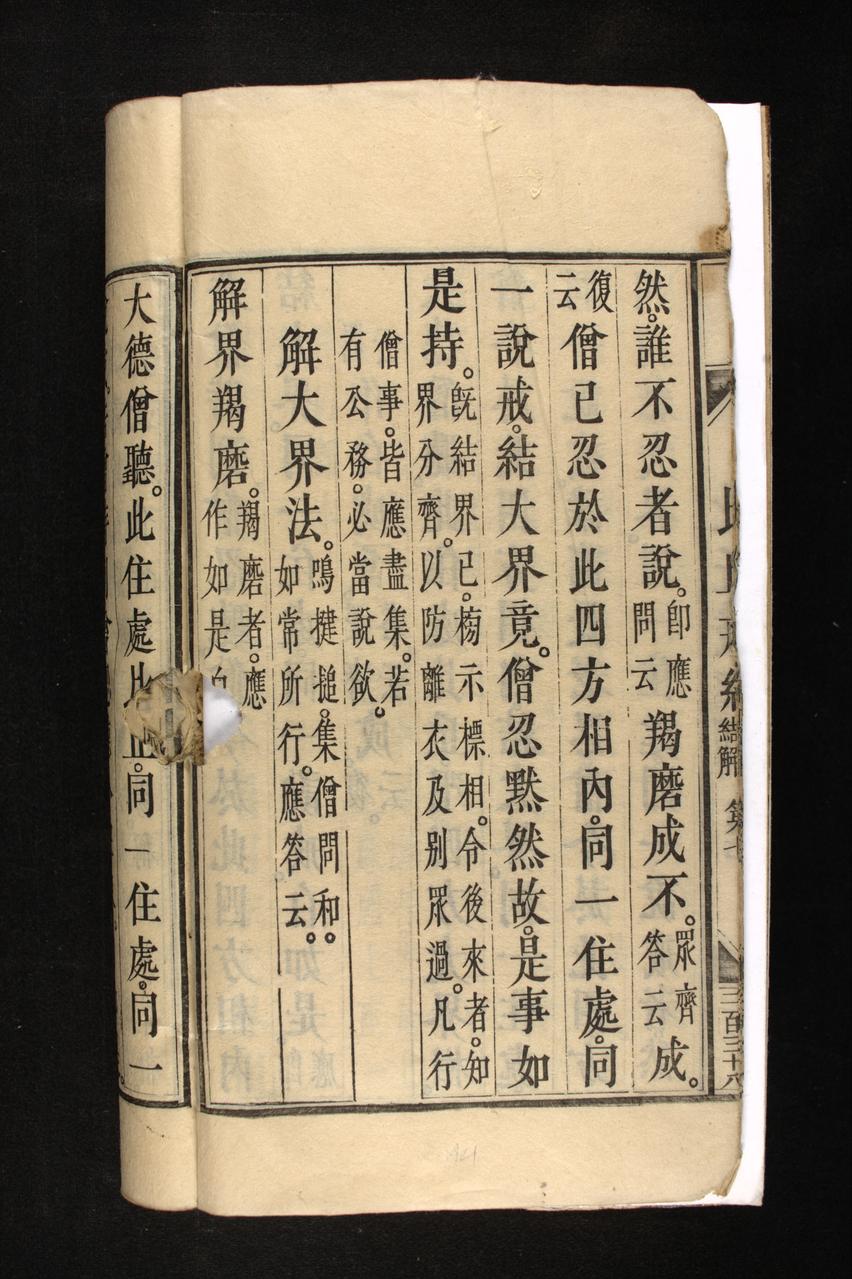 結解
三百三十六
然。誰不忍者說。即應問云羯磨成不。眾齊答云成。
復云僧已忍於此四方相內。同一住處。同
一說戒。結大界竟。僧忍默然故。是事如
是持。既結界已。榜示標相。令後來者。知界分齊。以防離衣及别眾過。凡行
僧事。皆應盡集。若有公務。必當說欲。
解大界法。鳴揵搥。集僧問和。如常所行。應答云。
解界羯磨。羯磨者。應作如是
大德僧聽。此住處同一住處。同一